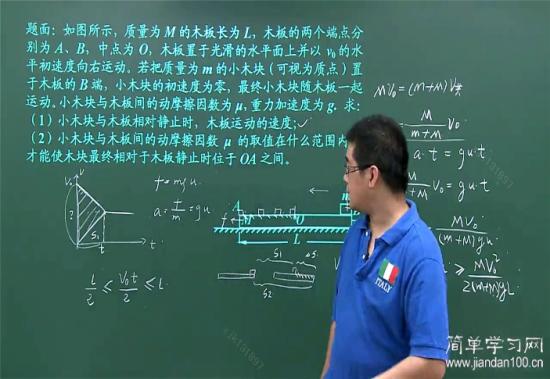 题面：如图所示，质量为M的木板长为L，木板的两个端点分
别为A、B，中点为O，木板置于光滑的水平面上并以v₀的水
平初速度向右运动。若把质量为m的小木块（可视为质点）置
于木板的B端，小木块的初速度为零，最终小木块随木板一起
运动。小木块与木板间的动摩擦因数为μ，重力加速度为g。求：
（1）小木块与木板相对静止时，木板运动的速度；
（2）小木块与木板间的动摩擦因数 μ 的取值在什么范围内
才能使木块最终相对于木板静止时位于OA之间。
MV₀=(m+M)V共
M/(m+M) V₀
a·t=gu·t
V₀=gu·t
MV₀/(m+M)gu
≥ MV₀²/2(m+M)gL
V
V₀
S₁
t
f=mgu
a=f/m=gu
L/2 ≤ V₀t/2 ≤ L
A
f
M
O
m
B
L
S₁
ΔS
S₂
ITALY
简单学习网
www.jiandan100.cn